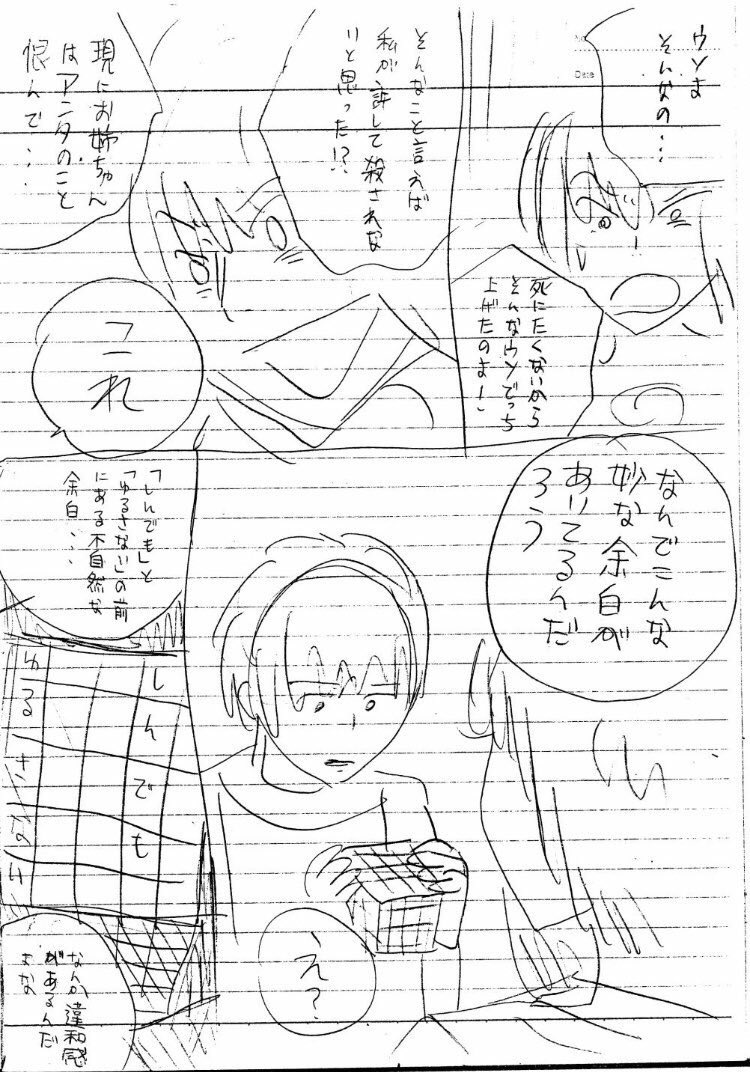 ウソよ
そんなの…
死にたくないから
そんなウソでっち
上げたのよ!
そんなこと言えば
私が許して殺されな
いと思った!?
現にお姉ちゃん
はアンタのこと
恨んで…
これ
なんでこんな
妙な余白が
あいてるんだ
ろう
え?
「しんでも」と
「ゆるさない」の前
にある不自然な
余白…
しんでも
ゆるさない
なんか違和感
があるんだ
よな
Date